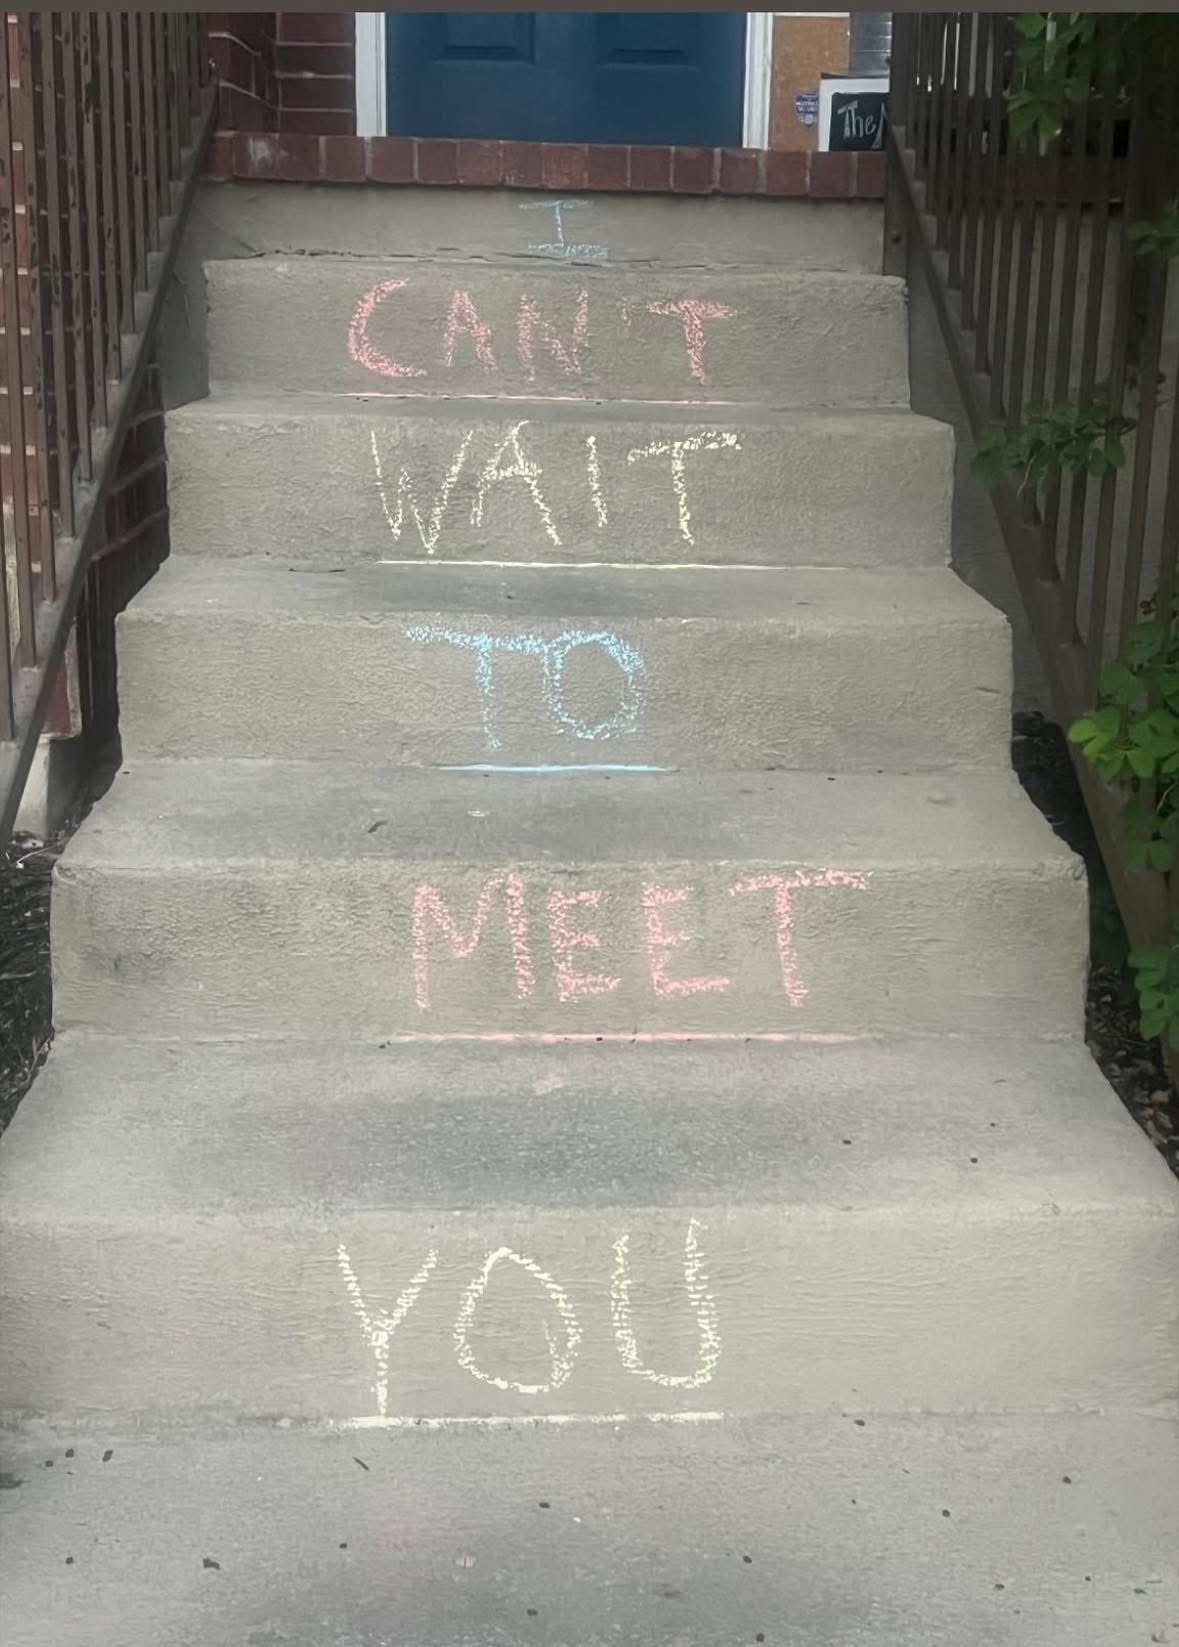 The
I
CAN'T
WAIT
TO
MEET
YOU